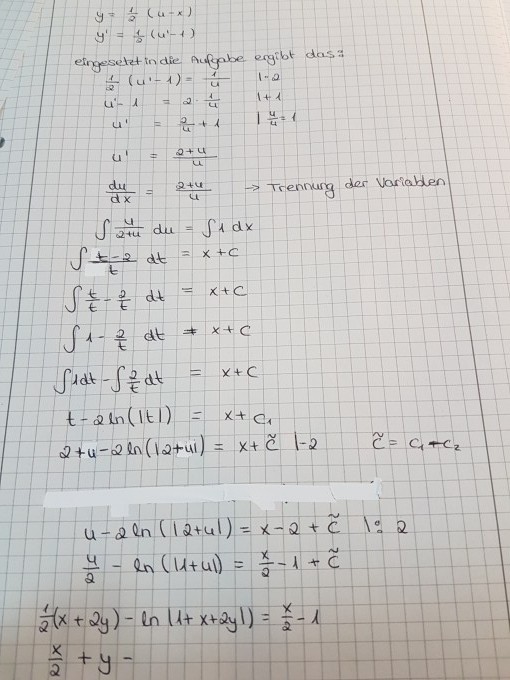 y = 1/2 (u-x)
y' = 1/2 (u'-1)
eingesetzt in die Aufgabe ergibt das:
1/2 (u'-1) = 1/u |·2
u'-1 = 2 · 1/u |+1
u' = 2/u + 1 | u/u = 1
u' = (2+u)/u
du/dx = (2+u)/u → Trennung der Variablen
∫ u/(2+u) du = ∫ 1 dx
∫ (t-2)/t dt = x+C
∫ t/t - 2/t dt = x+C
∫ 1 - 2/t dt = x+C
∫1dt - ∫ 2/t dt = x+C
t-2ln(|t|) = x+C₁
2+u-2ln(|2+u|) = x+C̃ |-2 C̃ = C₁+C₂
u-2ln(|2+u|) = x-2+C̃ |: 2
u/2 - ln(|1+u|) = x/2 - 1 + C̃
1/2(x+2y) - ln|1+x+2y|) = x/2 - 1
x/2 + y -